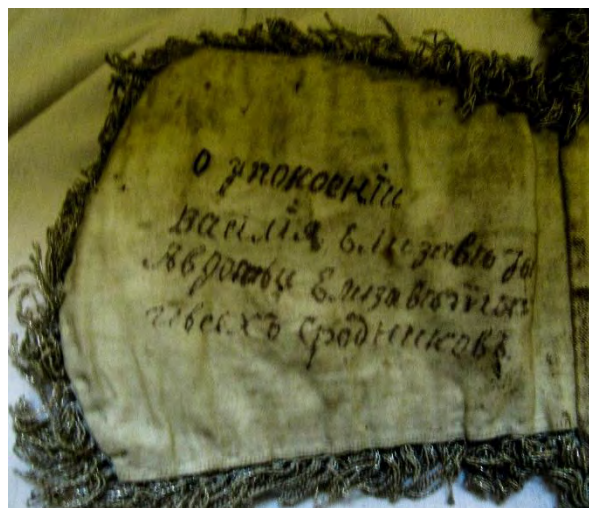 о упокоенїи
Василїя, Елизавѣты
Авдотьи Елизаветы
всѣхъ сродниковъ